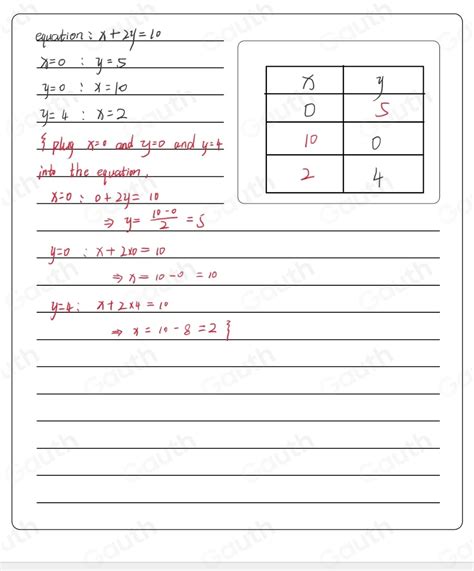 equation : x+2y=10
x=0 : y=5
y=0 : x=10
y=4 : x=2
{ plug x=0 and y=0 and y=4
into the equation,
x=0 : 0+2y= 10
⇒ y= (10-0)/2 = 5
y=0 : x+2x0=10
⇒ x= 10-0 = 10
y=4: x+2x4=10
⇒ x= 10-8=2 }
x y
0 5
10 0
2 4
Gauth